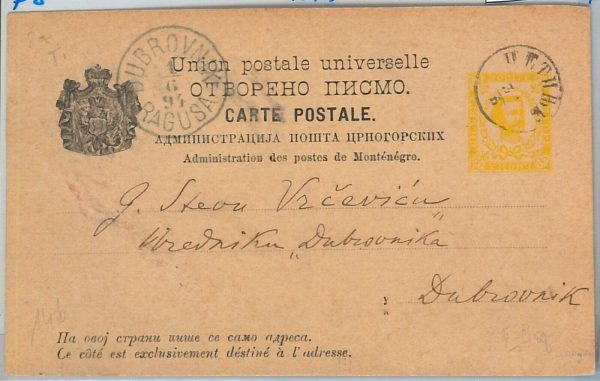 Union postale universelle
ОТВОРЕНО ПИСМО.
CARTE POSTALE.
АДМИНИСТРАЦИЈА ПОШТА ЦРНОГОРСКИХ
Administration des postes de Monténégro.
DUBROVNIK
6
94
RAGUSA
ЦЕТИЊЕ
G. Stevu Vrčeviću
Uredniku „Dubrovnika
у
Dubrovnik
На овој страни пише се само адреса.
Ce côté est exclusivement déstiné à l'adresse.